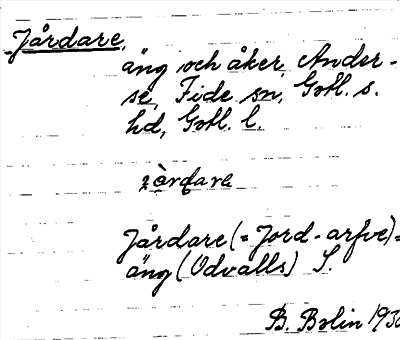 Jårdare,
äng och åker, Ander-
se, Fide sn, Gotl. s.
hd, Gotl. l.
Jårdare (= Jord-arfve)=
äng (Odvalls) S.
B. Bolin 193